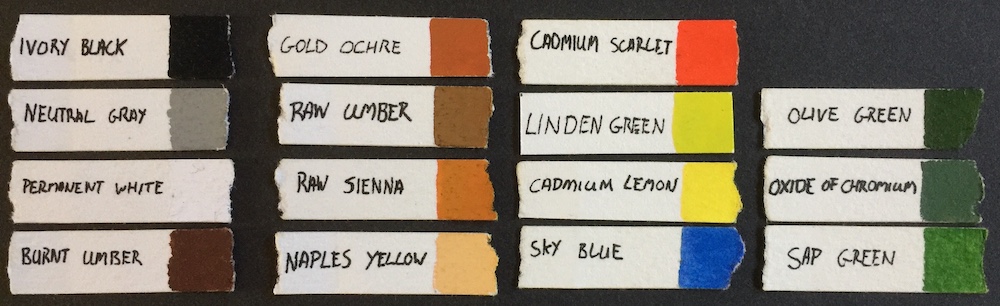 IVORY BLACK
NEUTRAL GRAY
PERMANENT WHITE
BURNT UMBER
GOLD OCHRE
RAW UMBER
RAW SIENNA
NAPLES YELLOW
CADMIUM SCARLET
LINDEN GREEN
CADMIUM LEMON
SKY BLUE
OLIVE GREEN
OXIDE OF CHROMIUM
SAP GREEN